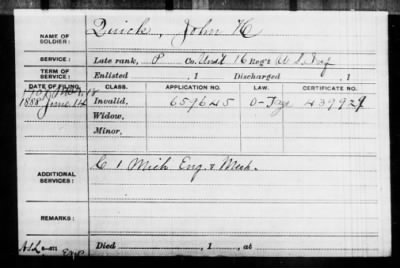 NAME OF SOLDIER: Quick, John H
SERVICE: Late rank, P Co. 16 Reg't U S Inf
TERM OF SERVICE: Enlisted , 1 Discharged , 1
DATE OF FILING. CLASS. APPLICATION NO. LAW. CERTIFICATE NO.
1888 June 14 Invalid, 659645
Widow,
Minor,
ADDITIONAL SERVICES: C 1 Mich Eng. & Mech.
REMARKS:
Died , 1 , at